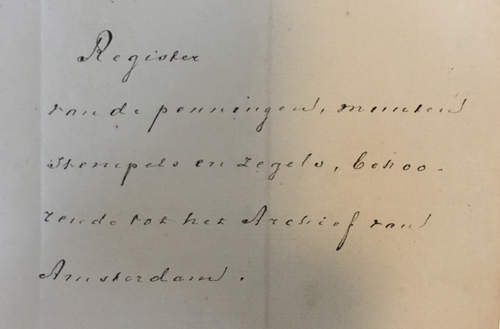 Register
van de penningen, munten
Stempels en zegels, behoo-
rende tot het Archief van
Amsterdam.